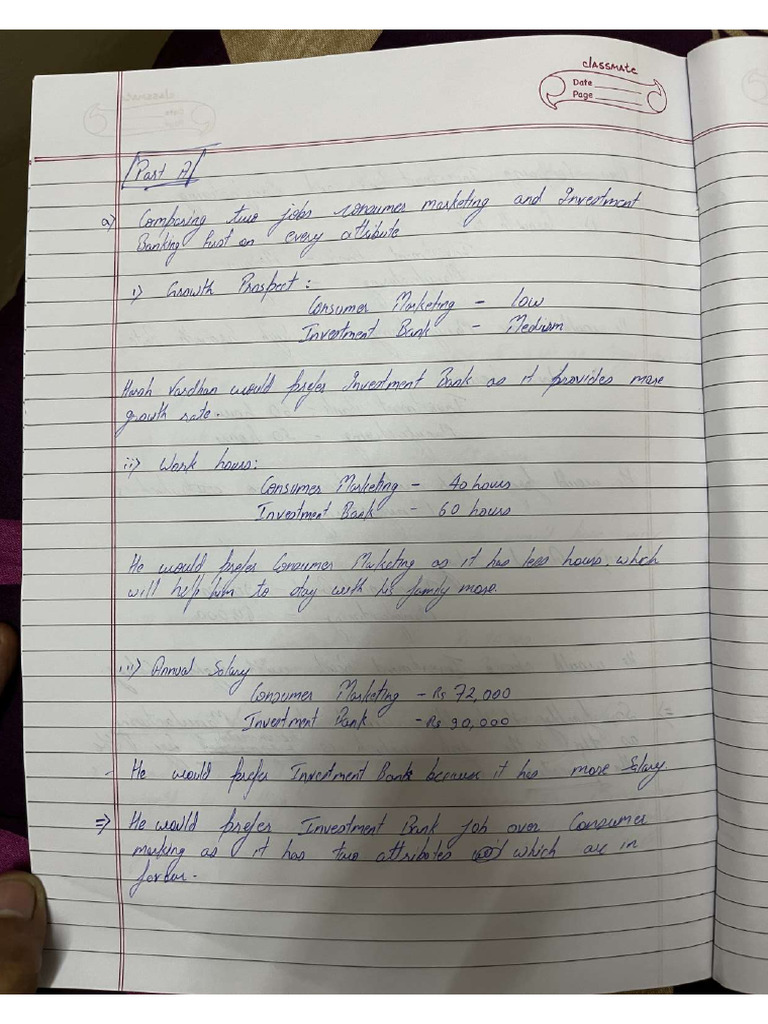 classmate
Date
Page
Part A
a) Comparing two jobs consumer marketing and Investment
Banking first on every attribute
i) Growth Prospect:
Consumer Marketing - Low
Investment Bank - Medium
Harsh Vardhan would prefer Investment Bank as it provides more
growth rate.
ii) Work hours:
Consumer Marketing - 40 hours
Investment Bank - 60 hours
He would prefer Consumer Marketing as it has less hours, which
will help him to stay with his family more.
iii) Annual Salary
Consumer Marketing - Rs 72,000
Investment Bank - Rs 90,000
- He would prefer Investment Bank because it has more Salary
⇒ He would prefer Investment Bank job over Consumer
marking as it has two attributes which are in
favour.